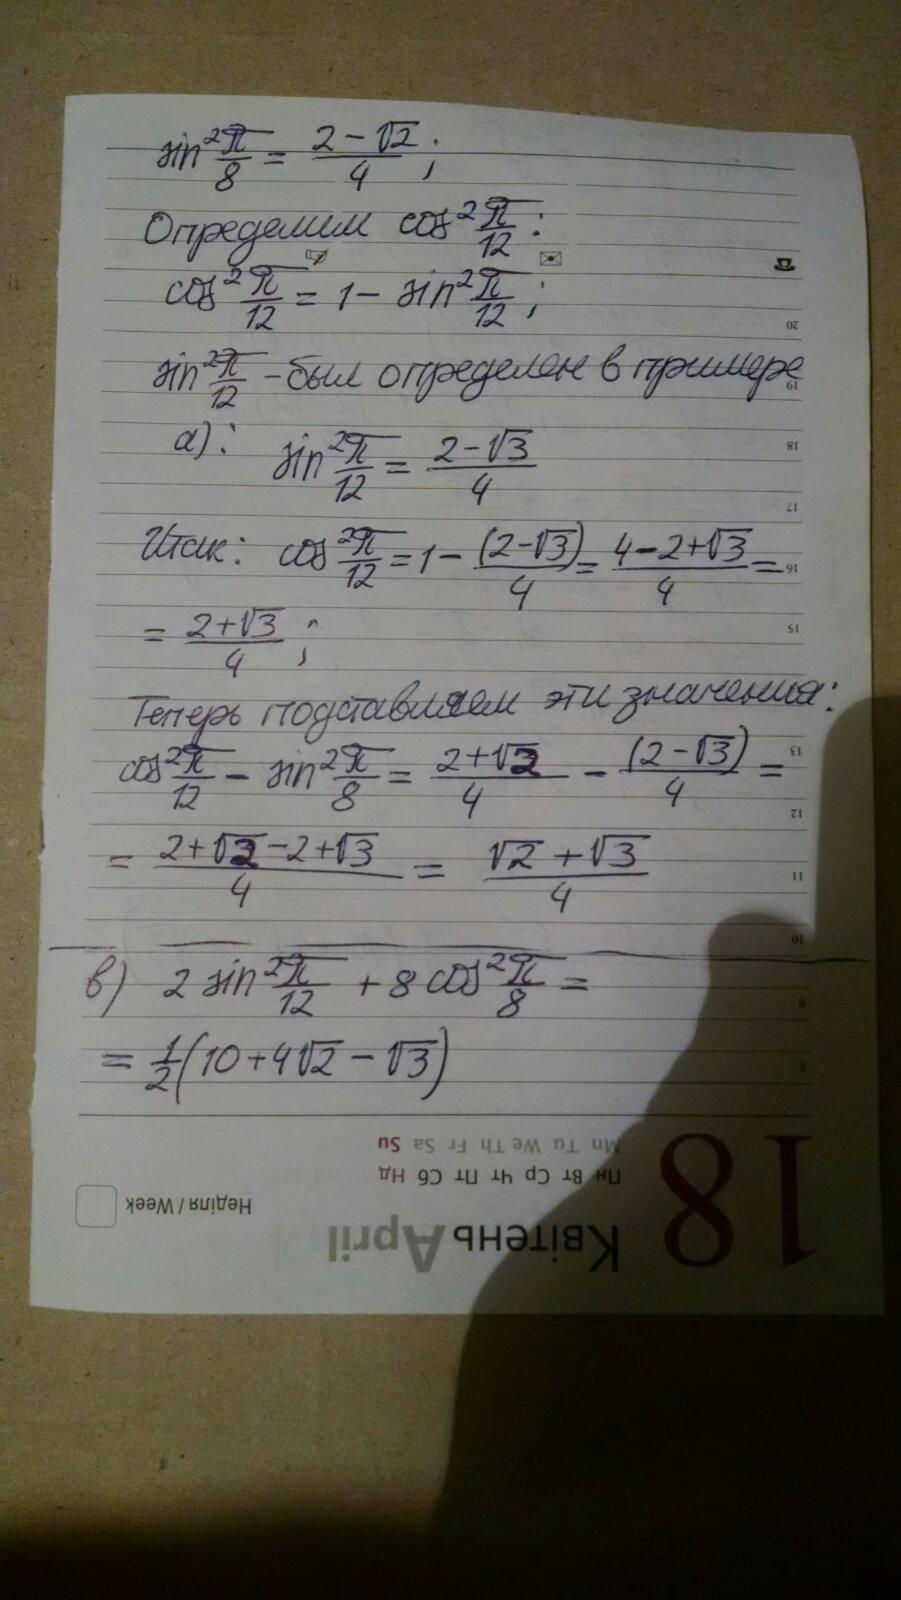 sin²π/8 = (2-√2)/4 ;
Определим cos²π/12 :
cos²π/12 = 1 - sin²π/12 ;
20
sin²π/12 - был определен в примере
19
а): sin²π/12 = (2-√3)/4
18
17
Итак: cos²π/12 = 1 - (2-√3)/4 = (4-2+√3)/4 =
16
= (2+√3)/4 ;
15
Теперь подставляем эти значения:
cos²π/12 - sin²π/8 = (2+√2)/4 - (2-√3)/4 =
13
12
= (2+√2-2+√3)/4 = (√2+√3)/4
11
10
в) 2 sin²π/12 + 8 cos²π/8 =
9
= 1/2(10+4√2-√3)
8
Mn Tu We Th Fr Sa Su
Пн Вт Ср Чт Пт Сб Нд
18
Неділя / Week
Квітень April